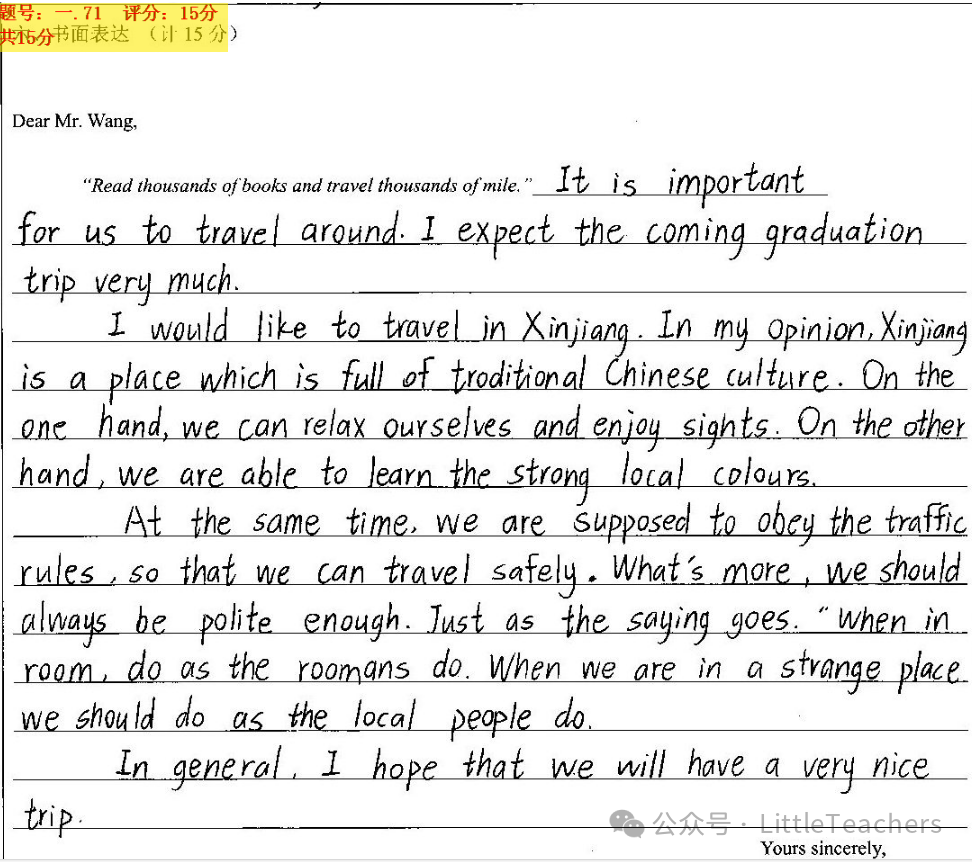 题号：一.71 评分：15分
共15分
书面表达 （计 15 分）
Dear Mr. Wang,
“Read thousands of books and travel thousands of mile.” It is important
for us to travel around. I expect the coming graduation
trip very much.
I would like to travel in Xinjiang. In my opinion, Xinjiang
is a place which is full of troditional Chinese culture. On the
one hand, we can relax ourselves and enjoy sights. On the other
hand, we are able to learn the strong local colours.
At the same time, we are supposed to obey the traffic
rules, so that we can travel safely. What's more, we should
always be polite enough. Just as the saying goes. “When in
room, do as the roomans do. When we are in a strange place
we should do as the local people do.
In general, I hope that we will have a very nice
trip.
公众号 · LittleTeachers
Yours sincerely,